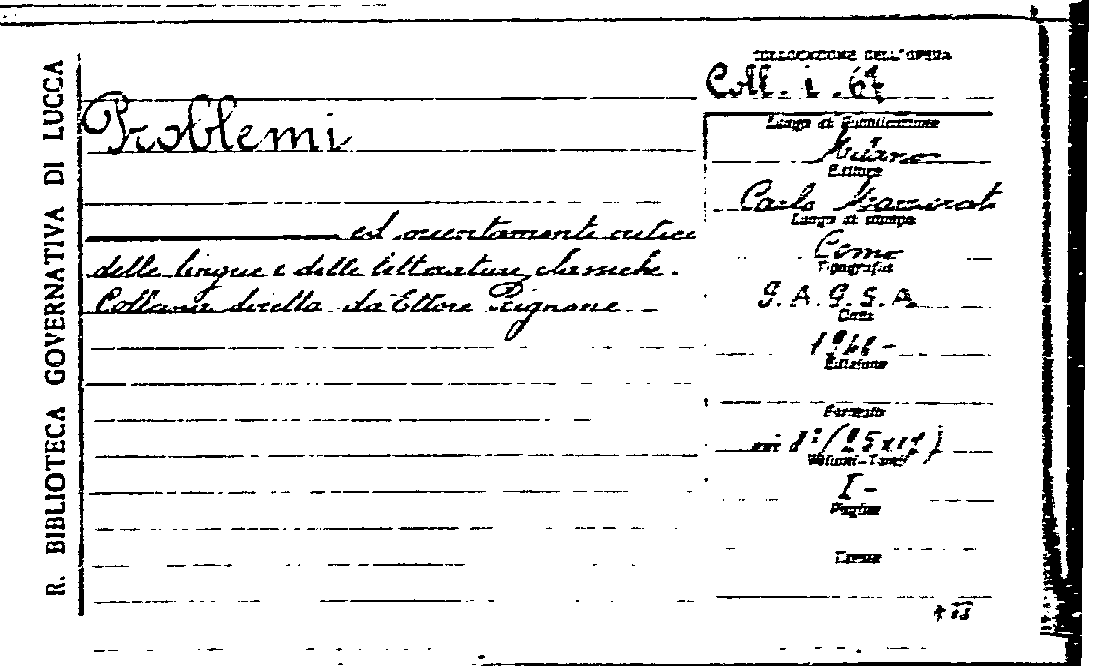 R. BIBLIOTECA GOVERNATIVA DI LUCCA
Problemi
ed orientamenti critici
delle lingue e delle letterature classiche.
Collana diretta da Ettore Bignone
COLLOCAZIONE DELL'OPERA
Coll. i. 67
Luogo di Pubblicazione
Milano
Editore
Carlo Marzorati
Luogo di stampa
Como
Tipografia
G.A.G.S.A.
Data
Edizione
Formato
in 8° (25x17)
Volumi-Tomi
I-
Pagine
Tavole